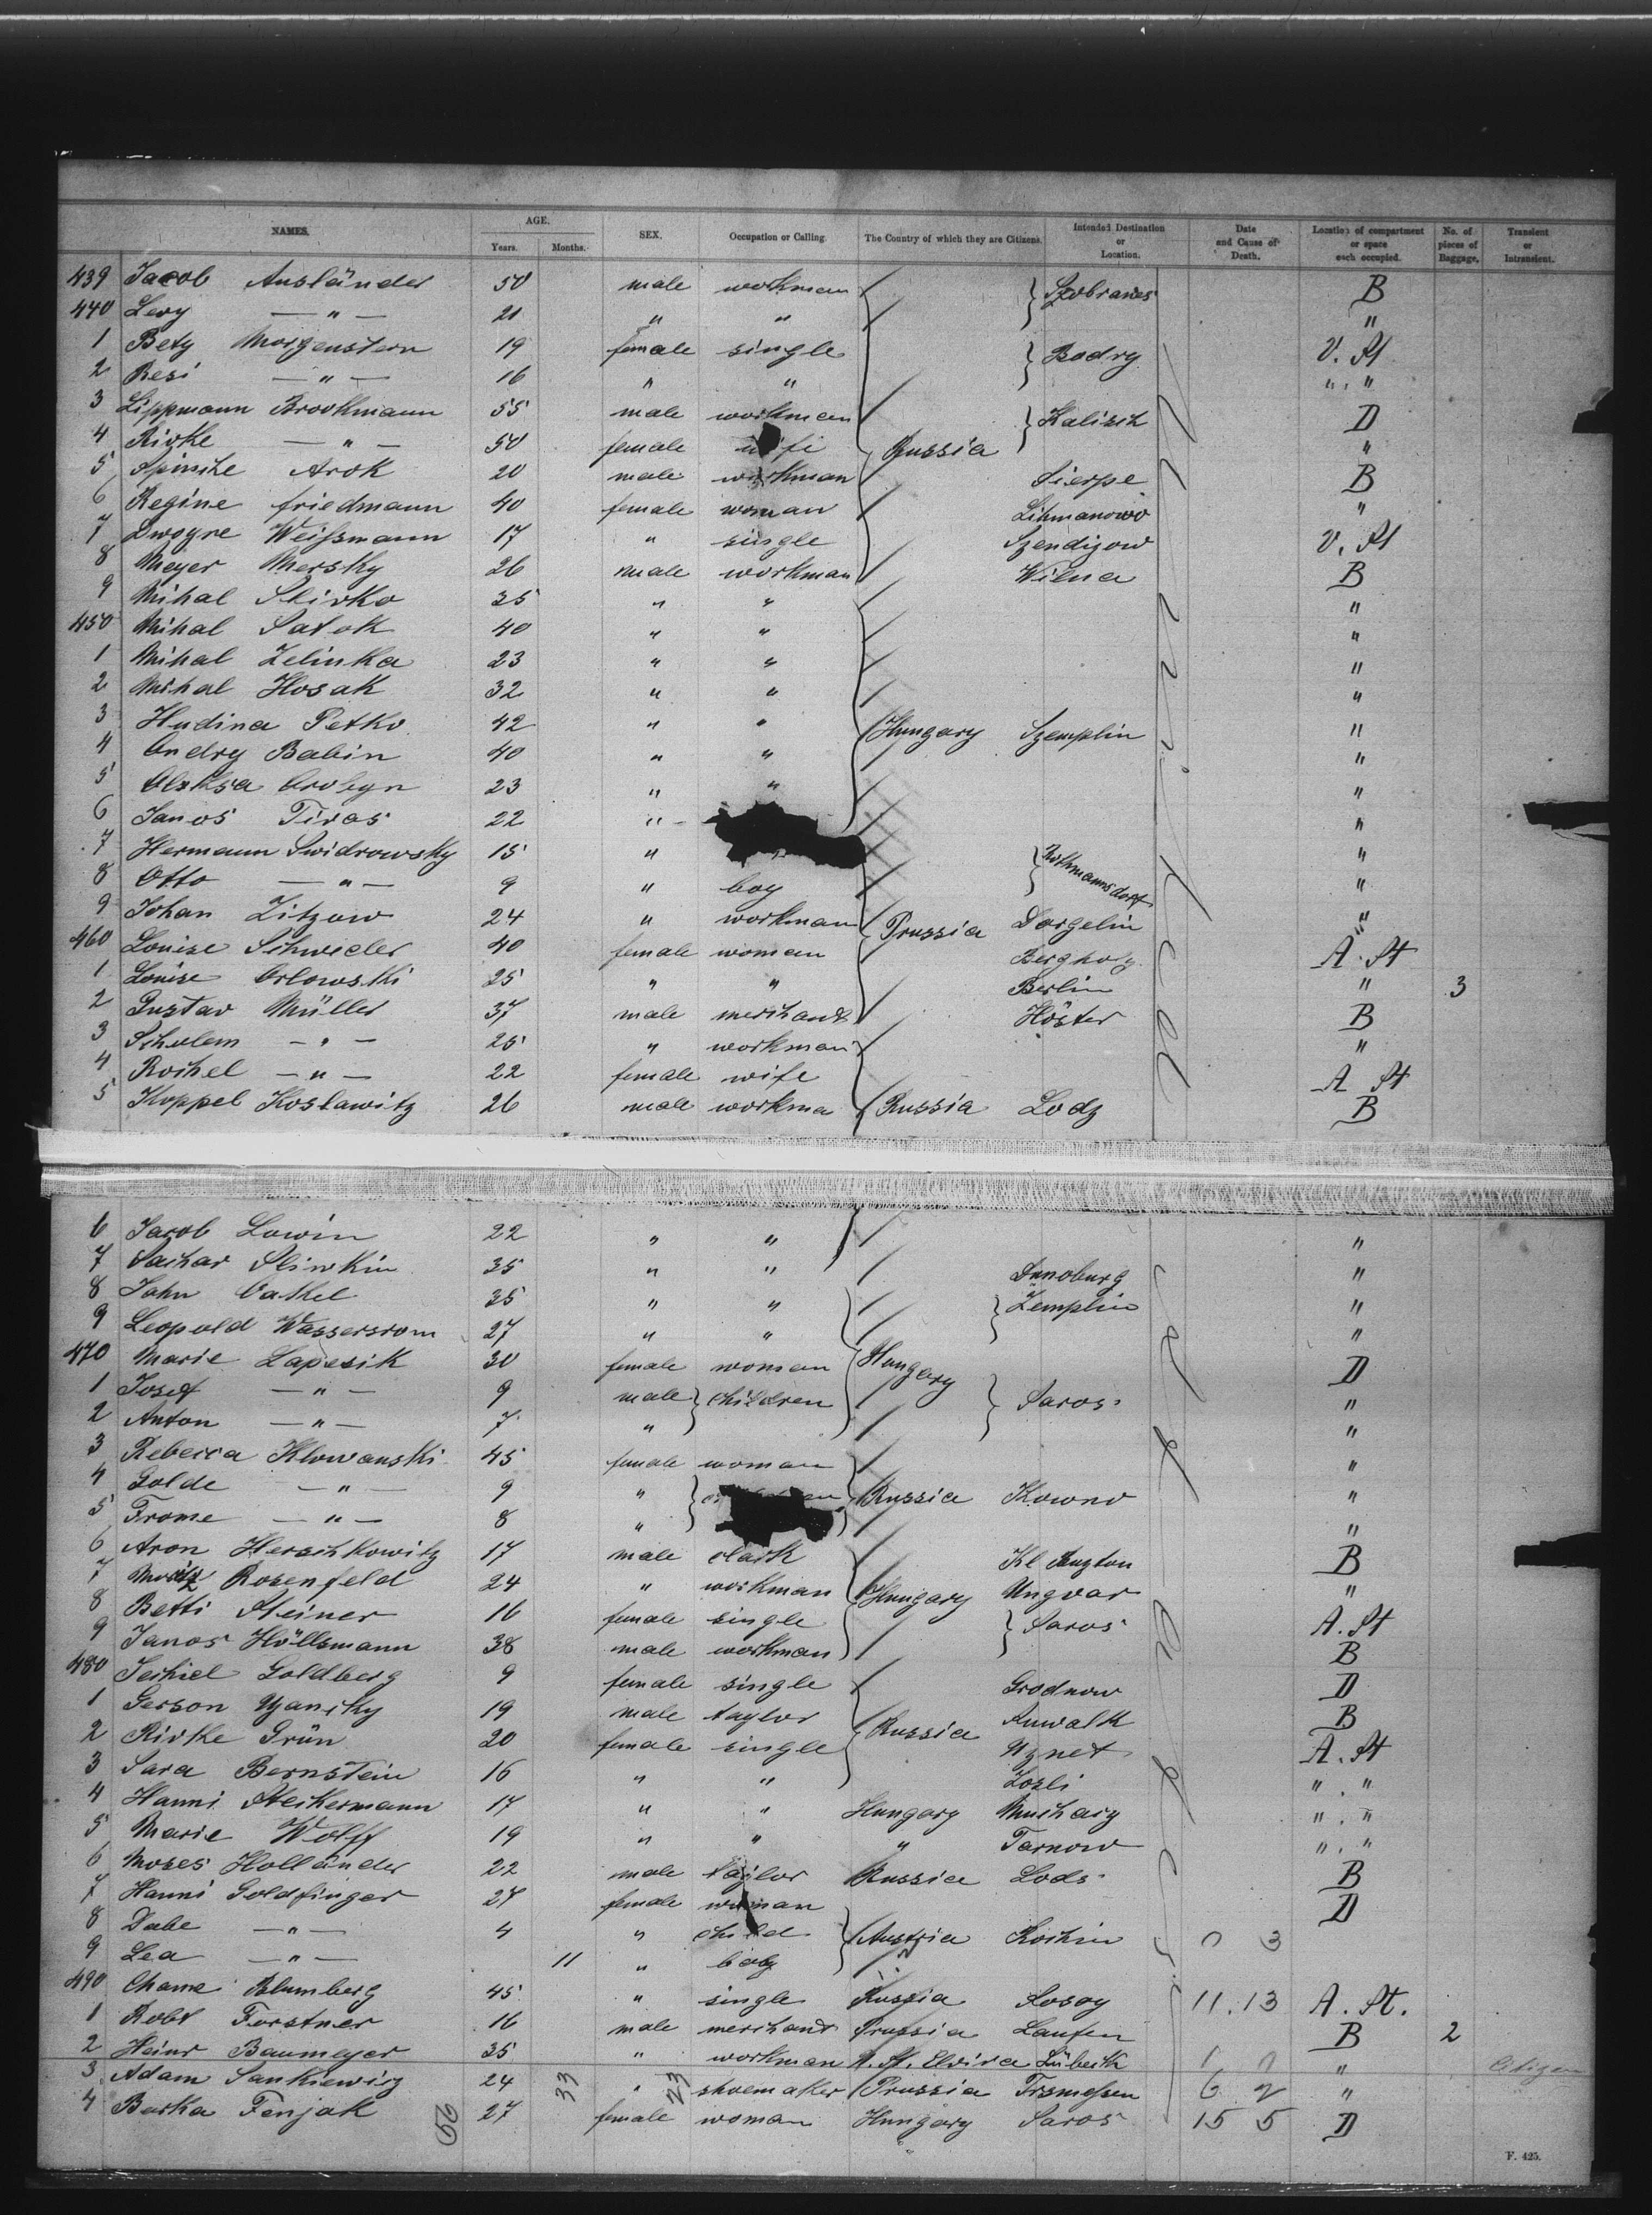 NAMES. AGE. SEX. Occupation or Calling. The Country of which they are Citizens. Intended Destination or Location. Date and Cause of Death. Location of compartment or space each occupied. No. of pieces of Baggage. Transient or Intransient.
Years. Months.
439 Jacob Ausländer 50 male workman Szobrances B
440 Levy —"— 21 " " "
1 Bety Morgenstern 19 female single Bodrg V. St
2 Resi —"— 16 " " " . "
3 Lippmann Brookmann 55 male workman Kalisch D
4 Rivke —"— 50 female wife Russia "
5 Arok 20 male workman Sierpe B
6 Regine Friedmann 40 female woman Lihmanowo "
7 Dwogre Weißmann 17 " single Szendizow V. St
8 Meyer Mersky 26 male workman Wilna B
9 Mihal Slivko 35 " " "
450 Mihal Satok 40 " " "
1 Mihal Zelinka 23 " " "
2 Mihal Hosak 32 " " "
3 Hudina Petko 42 " " Hungary Szemplin "
4 Andry Babin 40 " " "
5 23 " " "
6 Janos Tiras 22 " "
7 Hermann Swidrowsky 15 " "
8 Otto —"— 9 " boy "
9 Johan Zitzow 24 " workman Prussia Dargelin "
460 Louise Schweder 40 female woman A. St
1 Louise Orlowski 25 " " Berlin " 3
2 Gustav Müller 37 male merchant Höxter B
3 Scholem —"— 25 " workman "
4 Rochel —"— 22 female wife A St
5 Koppel Koslawitz 26 male workma Russia Lodz B
6 Jacob Lewin 22 " " "
7 Sachar Sliwkin 35 " " Dunoburg "
8 John 35 " " Zemplin "
9 Leopold Wasserstrom 27 " " "
470 Marie Lapesik 30 female woman Hungary D
1 Josef —"— 9 male children Saros "
2 Anton —"— 7 " "
3 Rebecca Klowanski 45 female woman "
4 Golde —"— 9 " Russia Kowno "
5 Frome —"— 8 " "
6 Aron Herschkowitz 17 male clark B
7 Moritz Rosenfeld 24 " workman Hungary Ungvar "
8 Betti Steiner 16 female single Saros A. St
9 Janos Höllsmann 38 male workman B
480 Jechiel Goldberg 9 female single Grodnow D
1 Gerson 19 male taylor Suwalk B
2 Rivke Grün 20 female single Russia A. St
3 Sara Bernstein 16 " " " . "
4 Hanni Steikermann 17 " " Hungary " . "
5 Marie Wolff 19 " " " Tarnow " . "
6 Moses Holländer 22 male taylor Russia Lods B
7 Hanni Goldfinger 27 female woman D
8 Dabe —"— 4 " child Austria 0 3
9 Lea —"— 11 " baby
490 Chame Blumberg 45 " single Russia 11.13 A. St.
1 Robt Forstner 16 male merchant Prussia Laufen B 2
2 Heinr Baumeyer 35 " workman Lübeck " Citizen
3 Adam Sankiewig 24 33 " 23 shoemaker Prussia 6 2 "
4 Barka Fenjak 27 female woman Hungary Saros 15 5 D
F. 425.